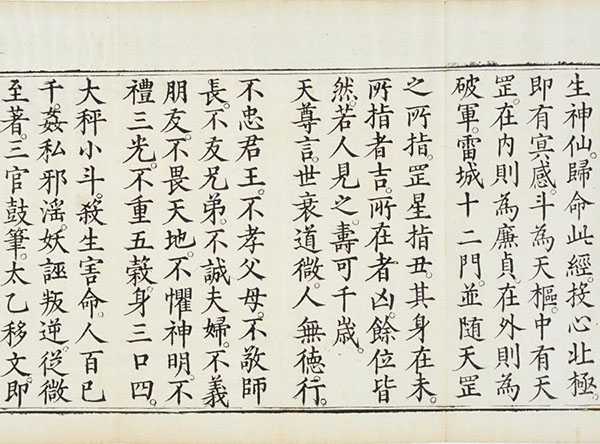 生神仙。歸命此經。投心北極。
即有冥感。斗為天樞。中有天
罡。在内則為廉貞。在外則為
破軍。雷城十二門。並随天罡
之所指。罡星指丑。其身在未。
所指者吉。所在者凶。餘位皆
然。若人見之。壽可千歲。
天尊言。世衰道微。人無德行。
不忠君王。不孝父母。不敬師
長。不友兄弟。不誠夫婦。不義
朋友。不畏天地。不懼神明。不
禮三光。不重五穀。身三口四。
大秤小斗。殺生害命。人百己
千。姦私邪淫。妖誣叛逆。從微
至著。三官鼓筆。太乙移文。即